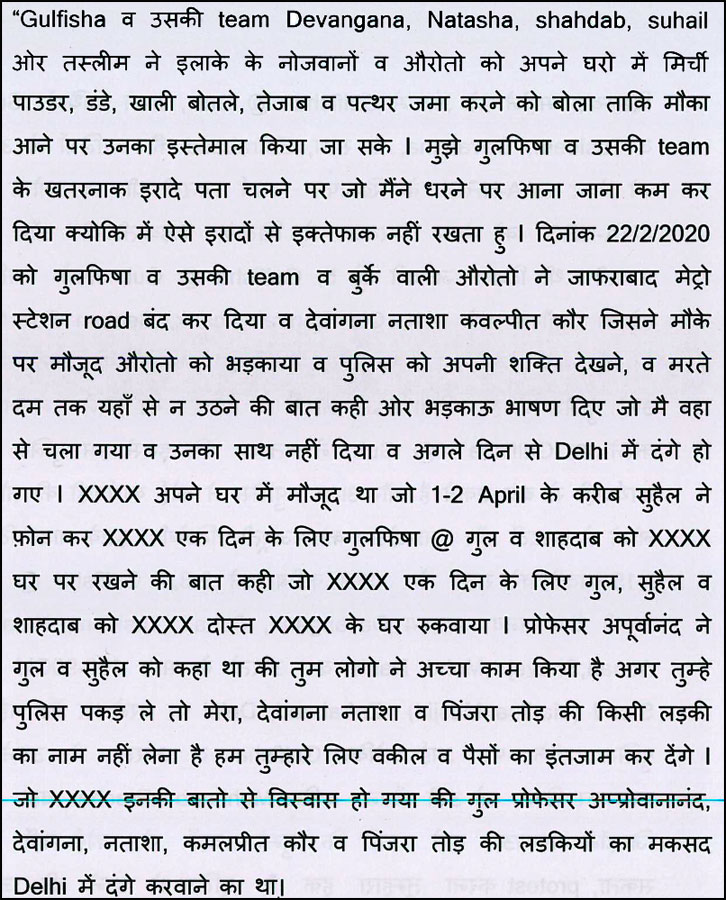 “Gulfisha व उसकी team Devangana, Natasha, shahdab, suhail
ओर तस्लीम ने इलाके के नोजवानों व औरोतो को अपने घरो में मिर्ची
पाउडर, डंडे, खाली बोतले, तेजाब व पत्थर जमा करने को बोला ताकि मौका
आने पर उनका इस्तेमाल किया जा सके I मुझे गुलफिषा व उसकी team
के खतरनाक इरादे पता चलने पर जो मैंने धरने पर आना जाना कम कर
दिया क्योकि में ऐसे इरादों से इक्तेफाक नहीं रखता हु I दिनांक 22/2/2020
को गुलफिषा व उसकी team व बुर्के वाली औरोतो ने जाफराबाद मेट्रो
स्टेशन road बंद कर दिया व देवांगना नताशा कवल्पीत कौर जिसने मौके
पर मौजूद औरोतो को भड़काया व पुलिस को अपनी शक्ति देखने, व मरते
दम तक यहाँ से न उठने की बात कही ओर भड़काऊ भाषण दिए जो मै वहा
से चला गया व उनका साथ नहीं दिया व अगले दिन से Delhi में दंगे हो
गए I XXXX अपने घर में मौजूद था जो 1-2 April के करीब सुहैल ने
फ़ोन कर XXXX एक दिन के लिए गुलफिषा @ गुल व शाहदाब को XXXX
घर पर रखने की बात कही जो XXXX एक दिन के लिए गुल, सुहैल व
शाहदाब को XXXX दोस्त XXXX के घर रुकवाया I प्रोफेसर अपूर्वानंद ने
गुल व सुहैल को कहा था की तुम लोगो ने अच्चा काम किया है अगर तुम्हे
पुलिस पकड़ ले तो मेरा, देवांगना नताशा व पिंजरा तोड़ की किसी लड़की
का नाम नहीं लेना है हम तुम्हारे लिए वकील व पैसों का इंतजाम कर देंगे I
जो XXXX इनकी बातो से विस्वास हो गया की गुल प्रोफेसर अप्प्रोवानानंद,
देवांगना, नताशा, कमलप्रीत कौर व पिंजरा तोड़ की लडकियों का मकसद
Delhi में दंगे करवाने का था|